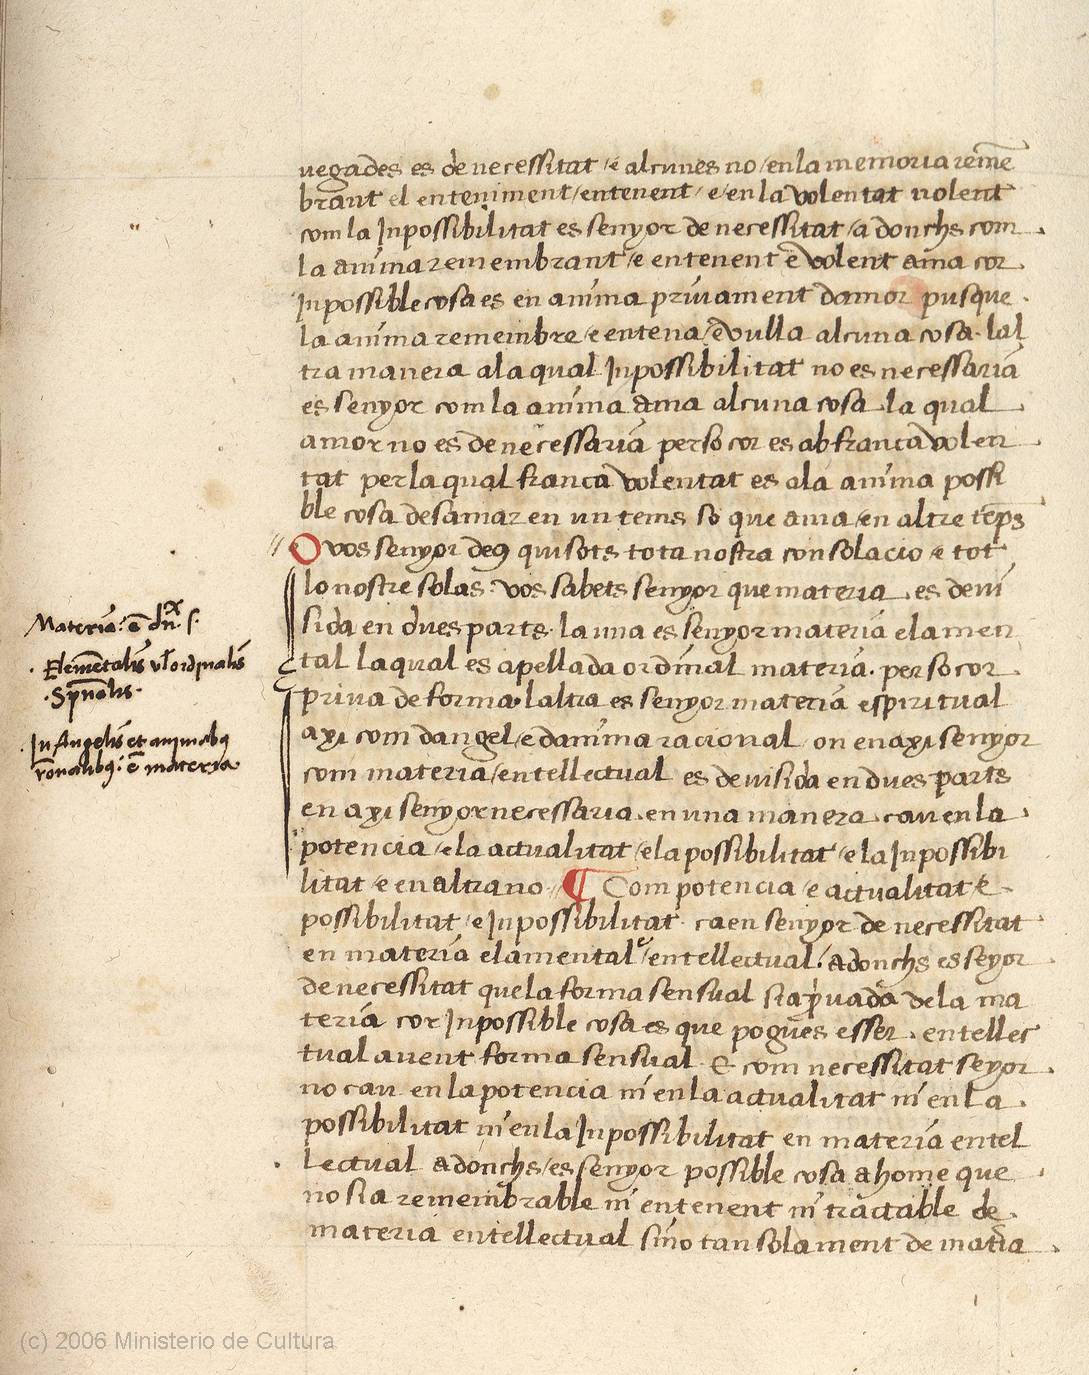 vegades es de necessitat / e alcunes no / en la memoria remē
brant el enteniment / entenent / e / en la volentat volent
com la Inpossibilitat es senyor de necessitat / a donchs com
la anima remembrant / e entenent e volent ama cor
Inpossible cosa es en anima privament damor pusque
la anima remembre / e entena / e vulla alcuna cosa. lal
tra manera ala qual Inpossibilitat no es necessaria
es senyor com la anima ama alcuna cosa la qual
amor no es de necessaria perso cor es ab franca volen
tat per la qual franca volentat es ala anima possi
ble cosa desamar en un tems so que ama / en altre temps
O vos senyor deꝰ qui sots tota nostra consolacio e tot
lo nostre solas: vos sabets senyor que materia es devi
sida en dues parts. la una es senyor materia elamen
tal la qual es apellada ordinal materia. per so cor
priva de forma. laltra es senyor materia espiritual
axi com dangel / e danima racional on en axi senyor
com materia / entellectual es devisida en dues parts
en axi senyor necessaria en una manera cau en la
potencia / e la actualitat / e la possibilitat / e la Inpossibi
litat e en altra no // ¶ Com potencia / e actualitat e
possibilitat / e Inpossibilitat caen senyor de necessitat
en materia elamental e / entellectual / adonchs es seyor
de necessitat que la forma sensual sia pͥvada de la ma
teria cor Inpossible cosa es que pogues esser entellec
tual avent forma sensual E com necessitat seyor
no cau en la potencia ni en la actualitat ni en la
possibilitat ni en la Inpossibilitat en materia entel
lectual adonchs / es senyor possible cosa a home que
no sia remembrable ni entenent ni tractable de
materia entellectual sino tan solament de matia
Materia: ē dn̄x s.
Elemētalis vl ordinalis
Spūalis
In Angelis et animabꝰ
rōnalibꝰ: ē materia
(c) 2006 Ministerio de Cultura